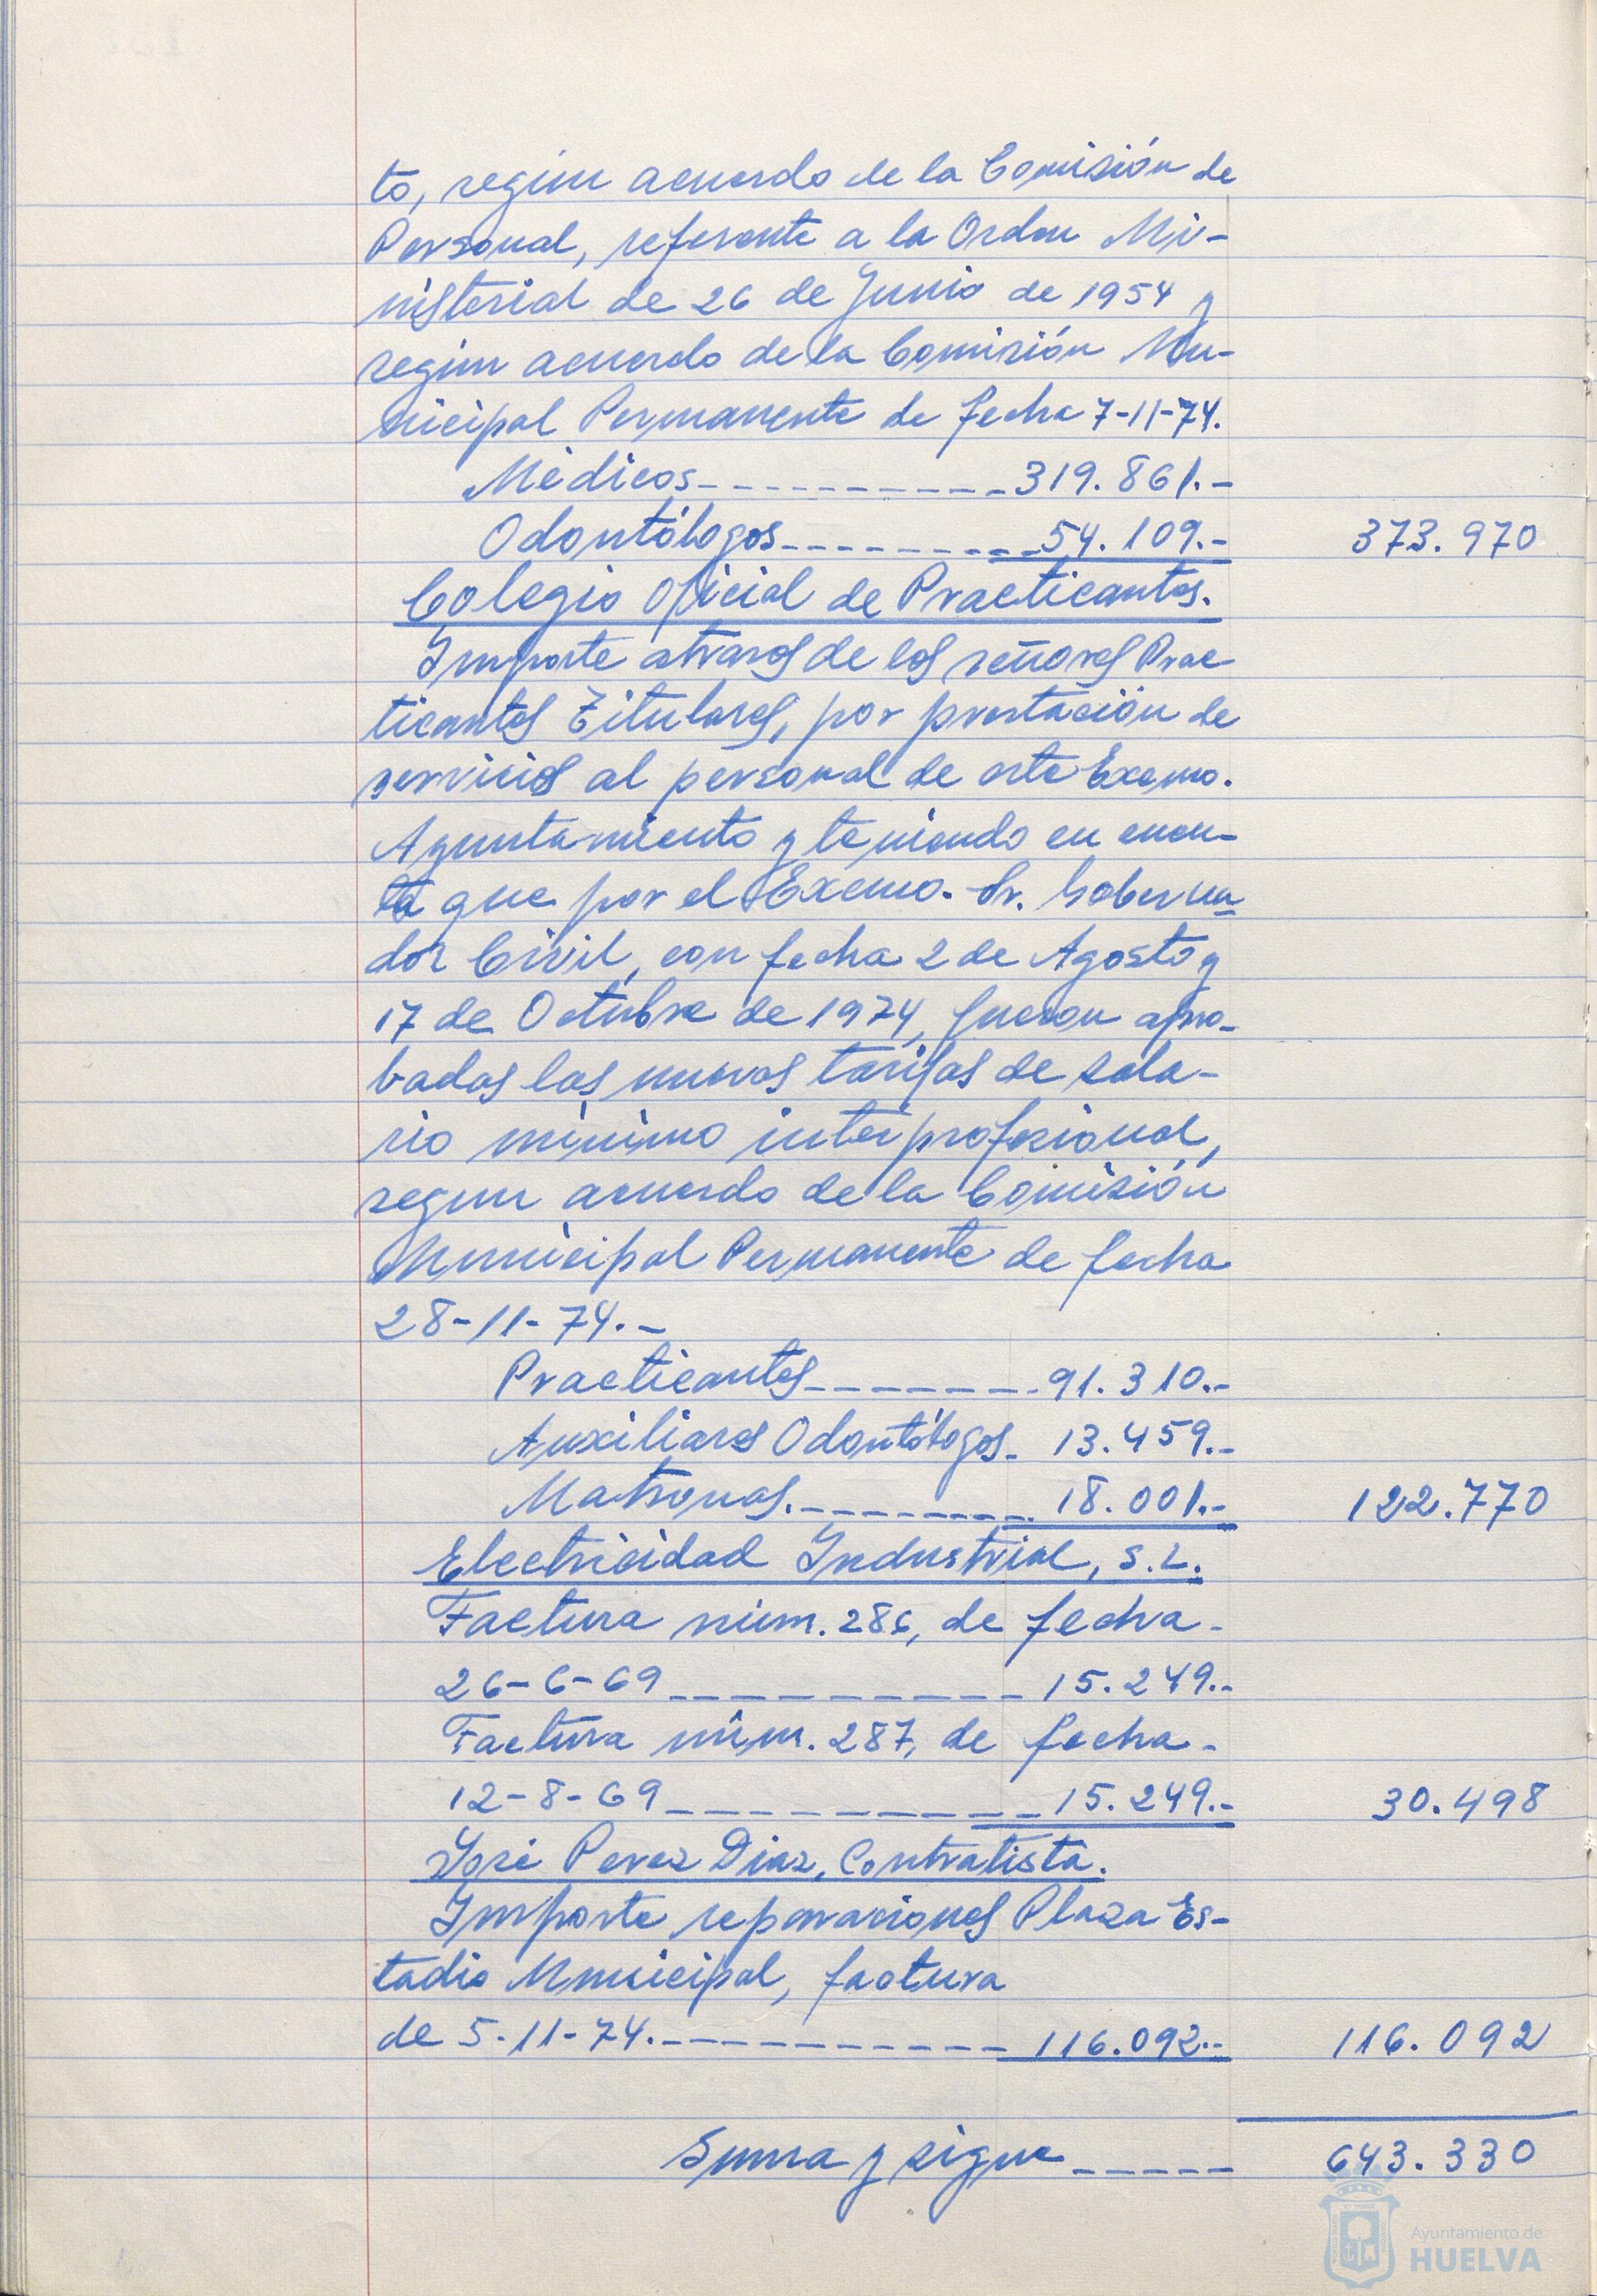 to, según acuerdo de la Comisión de
Personal, referente a la Orden Mi-
nisterial de 26 de Junio de 1954 y
según acuerdo de la Comisión Mu-
nicipal Permanente de fecha 7-11-74.
Médicos----------319.861.-
Odontólogos----------54.109.- 373.970
Colegio Oficial de Practicantes.
Importe atrasos de los señores Prac
ticantes Titulares, por prestación de
servicios al personal de este Excmo.
Ayuntamiento y teniendo en cuen-
ta que por el Excmo. Sr. Goberna
dor Civil, con fecha 2 de Agosto y
17 de Octubre de 1974, fueron apro-
badas las nuevas tarifas de sala-
rio mínimo interprofesional,
según acuerdo de la Comisión
Municipal Permanente de fecha
28-11-74.-
Practicantes-------91.310.-
Auxiliares Odontólogos- 13.459.-
Matronas.-------- 18.001.- 122.770
Electricidad Industrial, S.L.
Factura núm. 286, de fecha-
26-6-69----------15.249.-
Factura núm. 287, de fecha-
12-8-69----------15.249.- 30.498
José Perez Diaz, Contratista.
Importe reparaciones Plaza Es-
tadio Municipal, factura
de 5-11-74.----------116.092.- 116.092
Suma y sigue----- 643.330
Ayuntamiento de
HUELVA